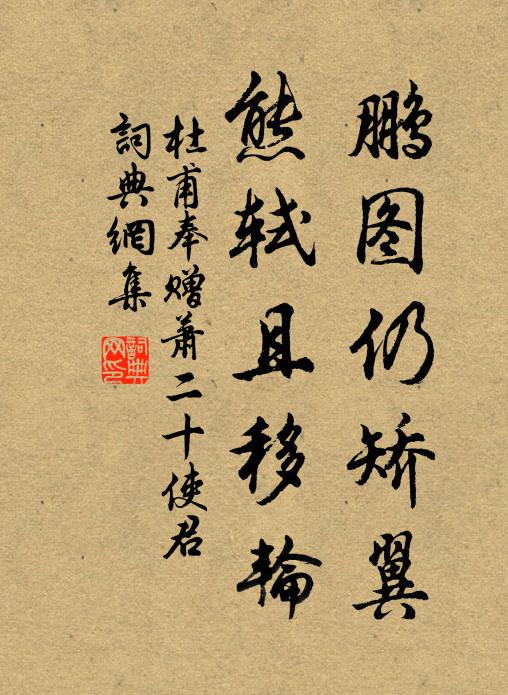 鹏图仍矫翼
熊轼且移輪
杜甫奉赠萧二十使君
詞典網集
詞典网印